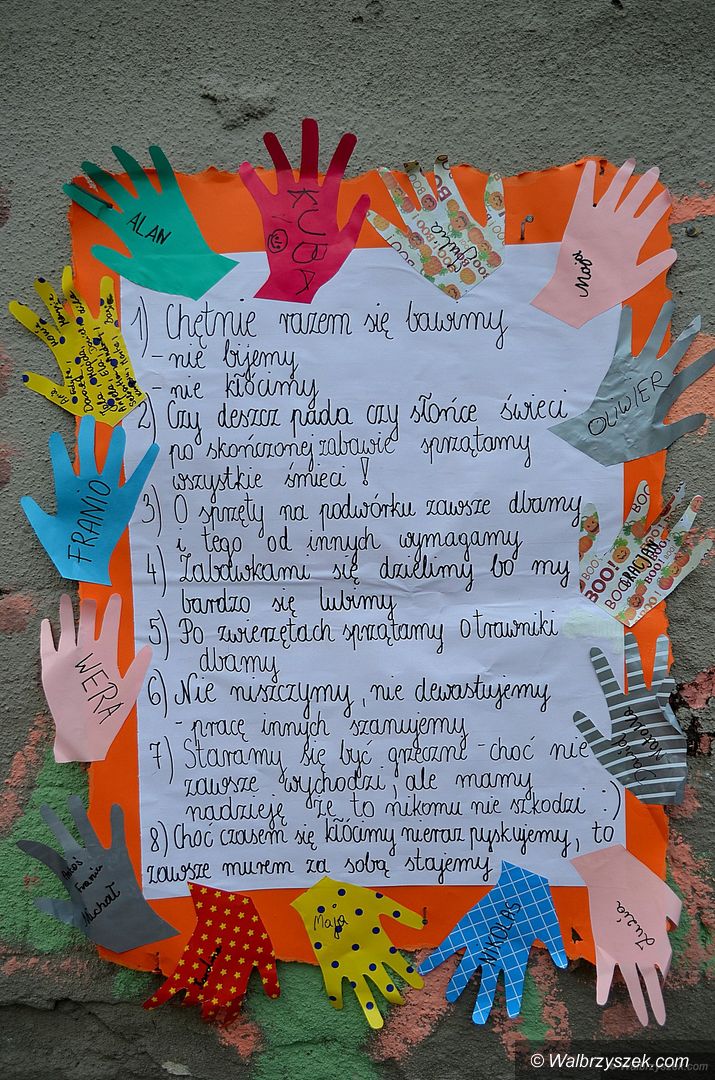 ALAN
KUBA
Maja
1) Chętnie razem się bawimy
- nie bijemy
- nie kłócimy
2) Czy deszcz pada czy słońce świeci
po skończonej zabawie sprzątamy
wszystkie śmieci!
3) O sprzęty na podwórku zawsze dbamy
i tego od innych wymagamy
4) Zabawkami się dzielimy bo my
bardzo się lubimy
5) Po zwierzętach sprzątamy o trawniki
dbamy
6) Nie niszczymy, nie dewastujemy
- pracę innych szanujemy
7) Staramy się być grzeczni - choć nie
zawsze wychodzi, ale mamy
nadzieję że to nikomu nie szkodzi :)
8) Choć czasem się kłócimy nieraz pyskujemy, to
zawsze murem za sobą stajemy
OLIWIER
FRANIO
BOO!
WERA
Franio
Michał
Maja
NIKOLAS
Zuzia
© Walbrzyszek.com